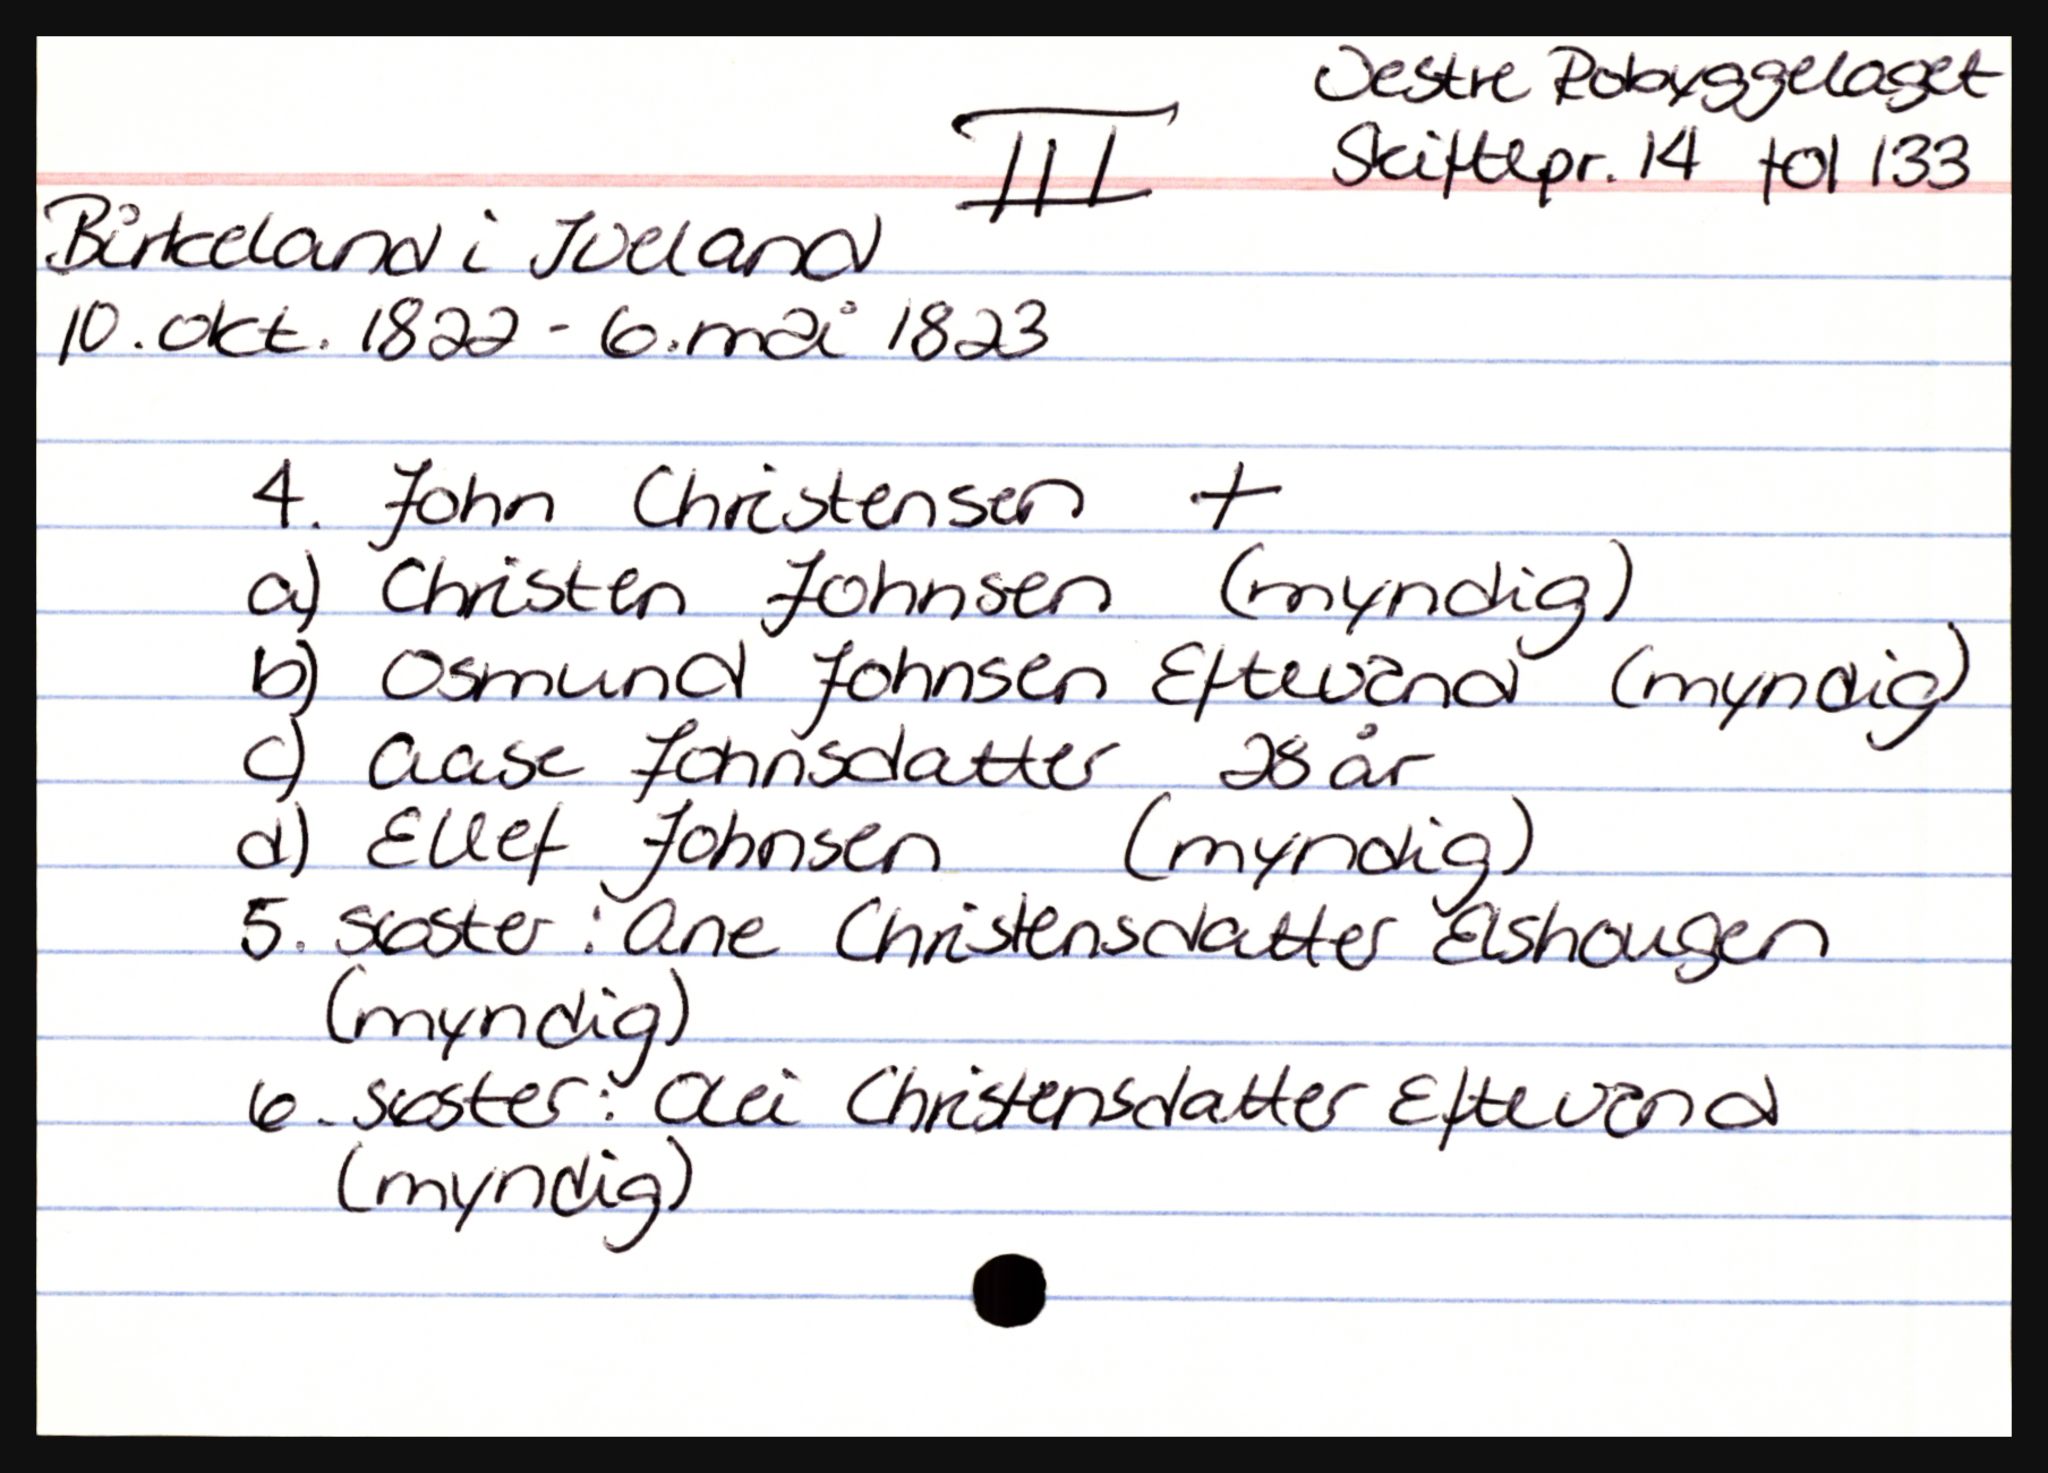 Vestre Robyggelaget
III
Skiftepr. 14 fol 133
Birkeland i Iveland
10. okt. 1822 - 6. mai 1823
4. John Christensen +
a) Christen Johnsen (myndig)
b) Osmund Johnsen Eftevand (myndig)
c) Aase Johnsdatter 28 år
d) Ellef Johnsen (myndig)
5. søster: Ane Christensdatter Elshougen
(myndig)
6. søster: Christensdatter Eftevand
(myndig)